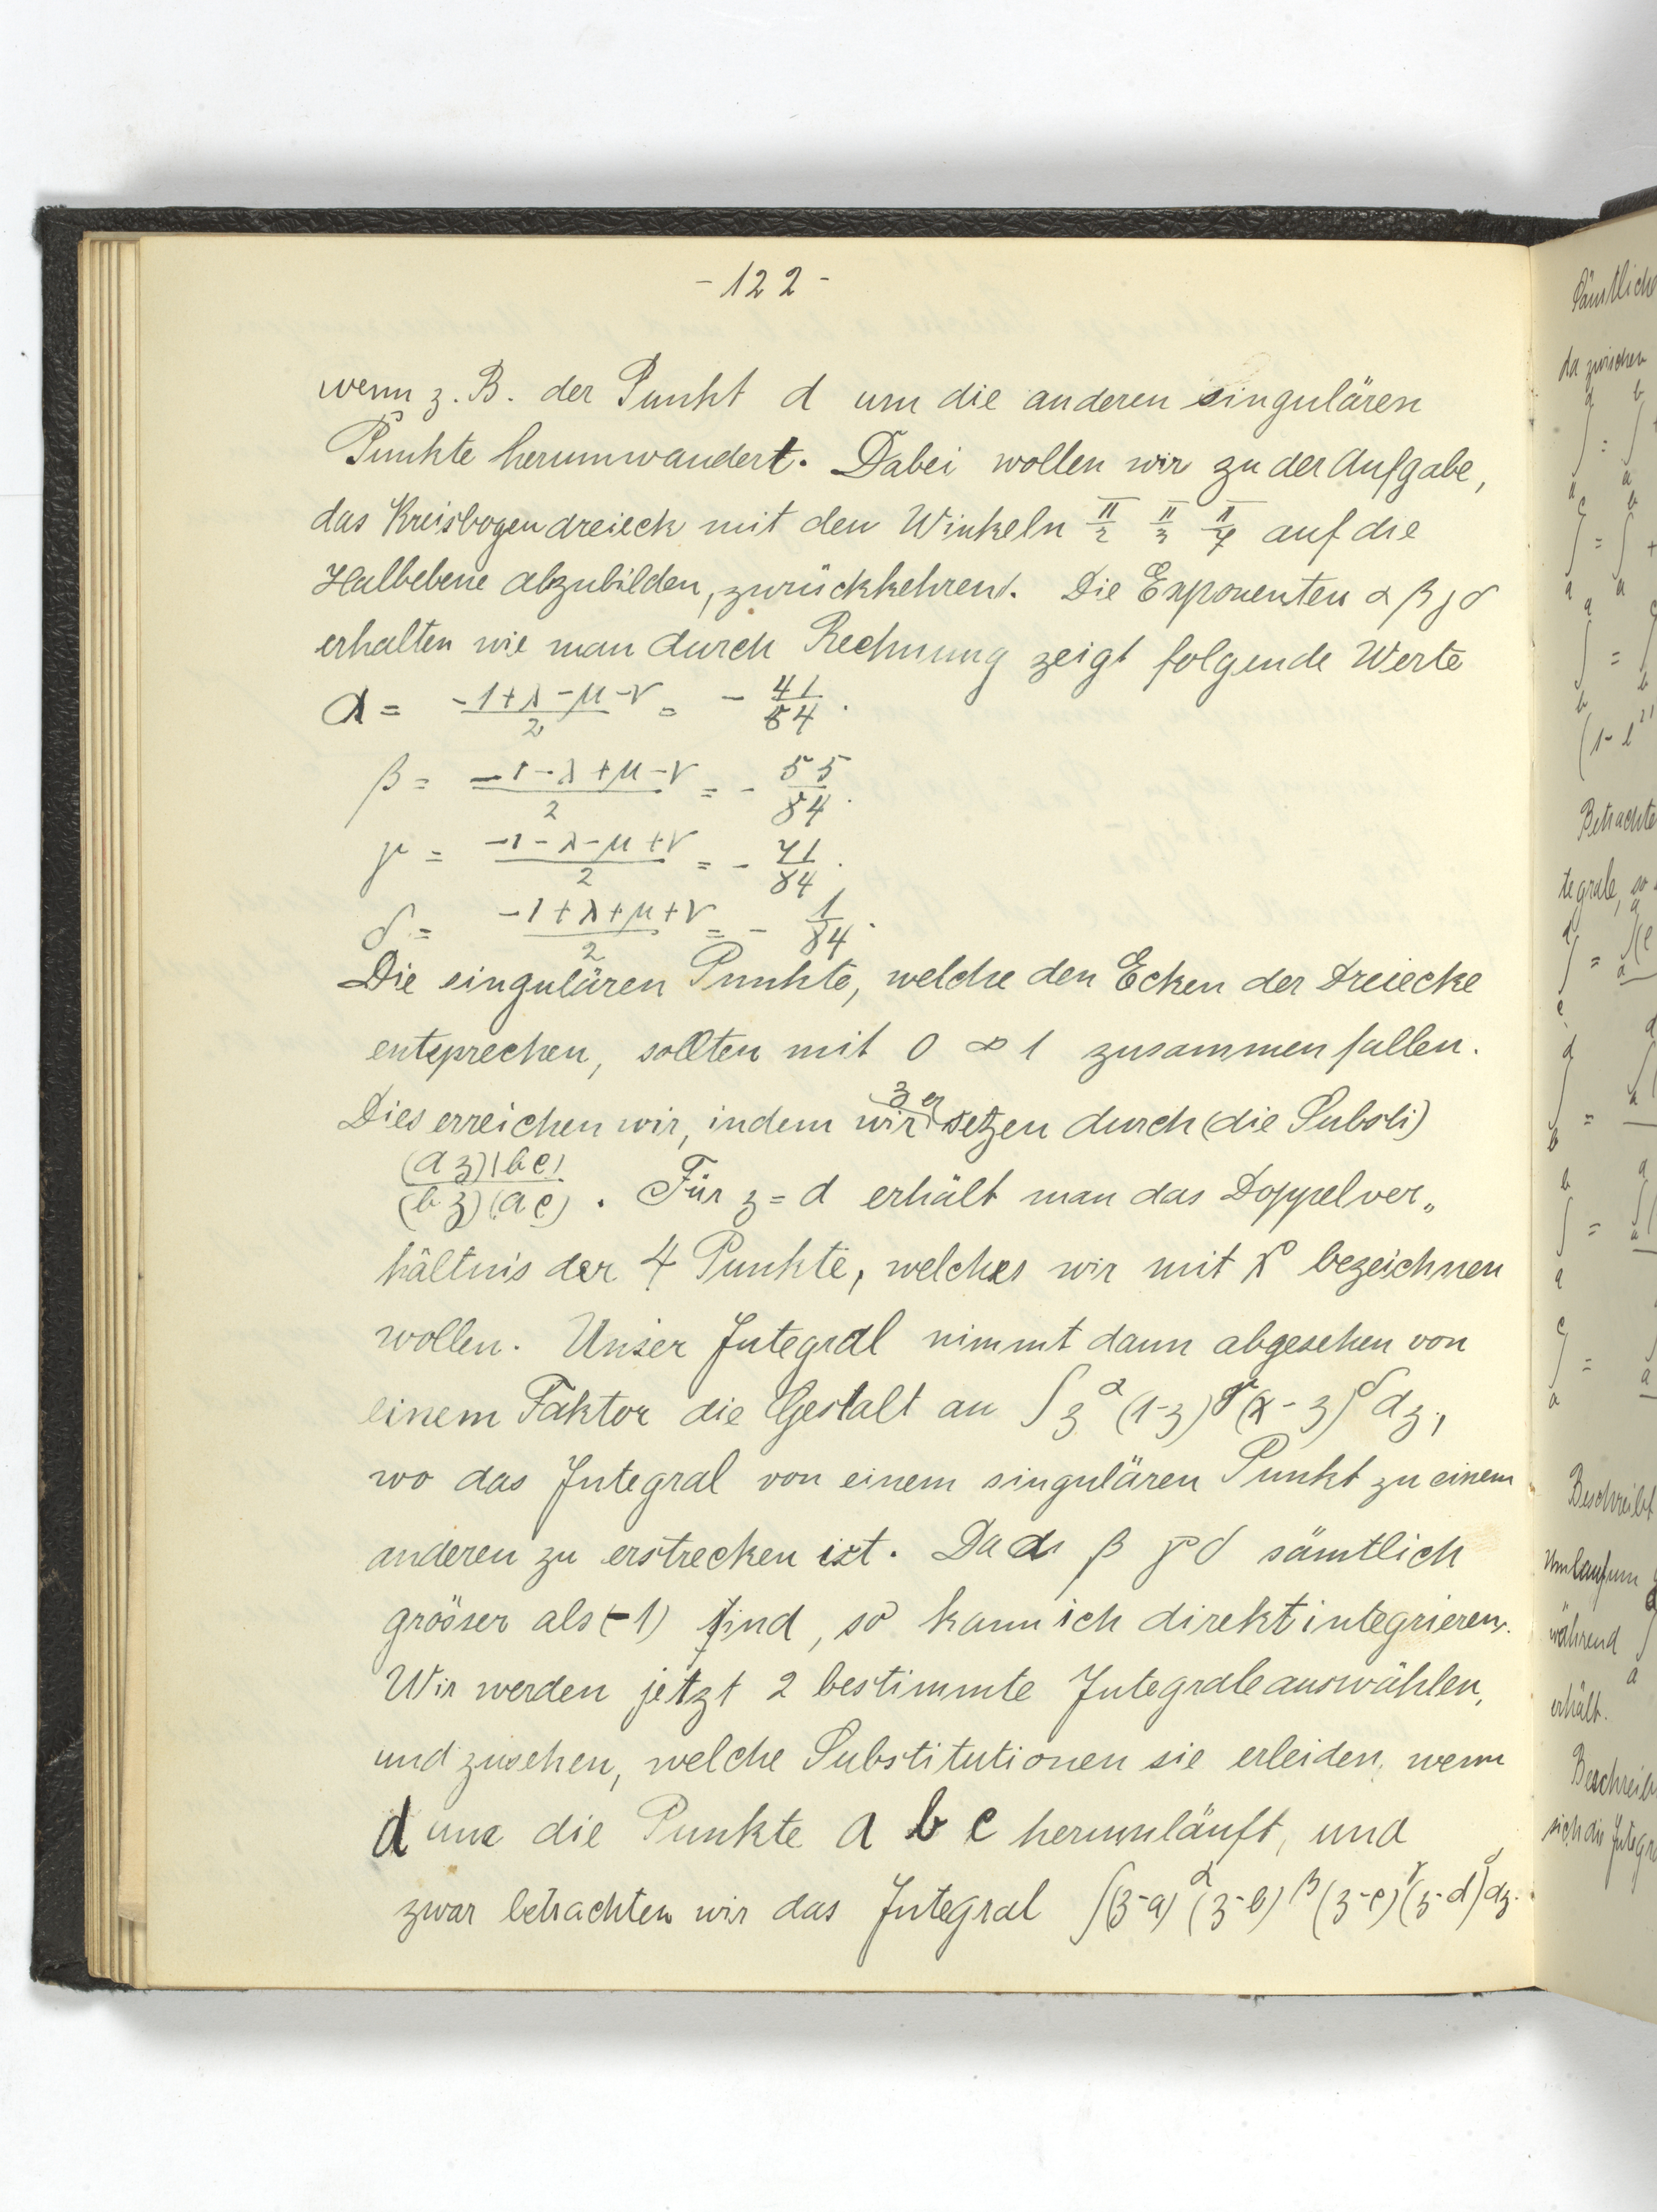 - 122 -
wenn z. B. der Punkt d um die anderen singulären
Punkte herumwandert. Dabei wollen wir zu der Aufgabe,
das Kreisbogendreieck mit den Winkeln π/2 π/3 π/7 auf die
Halbebene abzubilden, zurückkehren. Die Exponenten α β γ δ
erhalten wie man durch Rechnung zeigt folgende Werte
α = (-1+λ-μ-ν)/2 = - 41/84.
β = (-1-λ+μ-ν)/2 = - 55/84.
γ = (-1-λ-μ+ν)/2 = - 71/84.
δ = (-1+λ+μ+ν)/2 = - 1/84.
Die singulären Punkte, welche den Ecken der Dreiecke
entsprechen, sollten mit 0 ∞ 1 zusammenfallen.
Dies erreichen wir, indem wir z ersetzen durch (die Substi)
(a z)(b c)/(b z)(a c). Für z = d erhält man das Doppelver„
hältnis der 4 Punkte, welches wir mit x bezeichnen
wollen. Unser Integral nimmt dann abgesehen von
einem Faktor die Gestalt an ∫ z^α (1-z)^γ (x-z)^δ dz,
wo das Integral von einem singulären Punkt zu einem
anderen zu erstrecken ist. Da α β γ δ sämtlich
grösser als (-1) sind, so kann ich direkt integrieren.
Wir werden jetzt 2 bestimmte Integrale auswählen,
und zusehen, welche Substitutionen sie erleiden, wenn
d um die Punkte a b c herumläuft, und
zwar betrachten wir das Integral ∫(z-a)^α (z-b)^β (z-c)^γ (z-d)^δ dz.
Sämtliche
da zwischen
Betrachte
tegrale, so
Beschreibt
Umlauf um
während
erhält.
Beschreib
sich die Integra